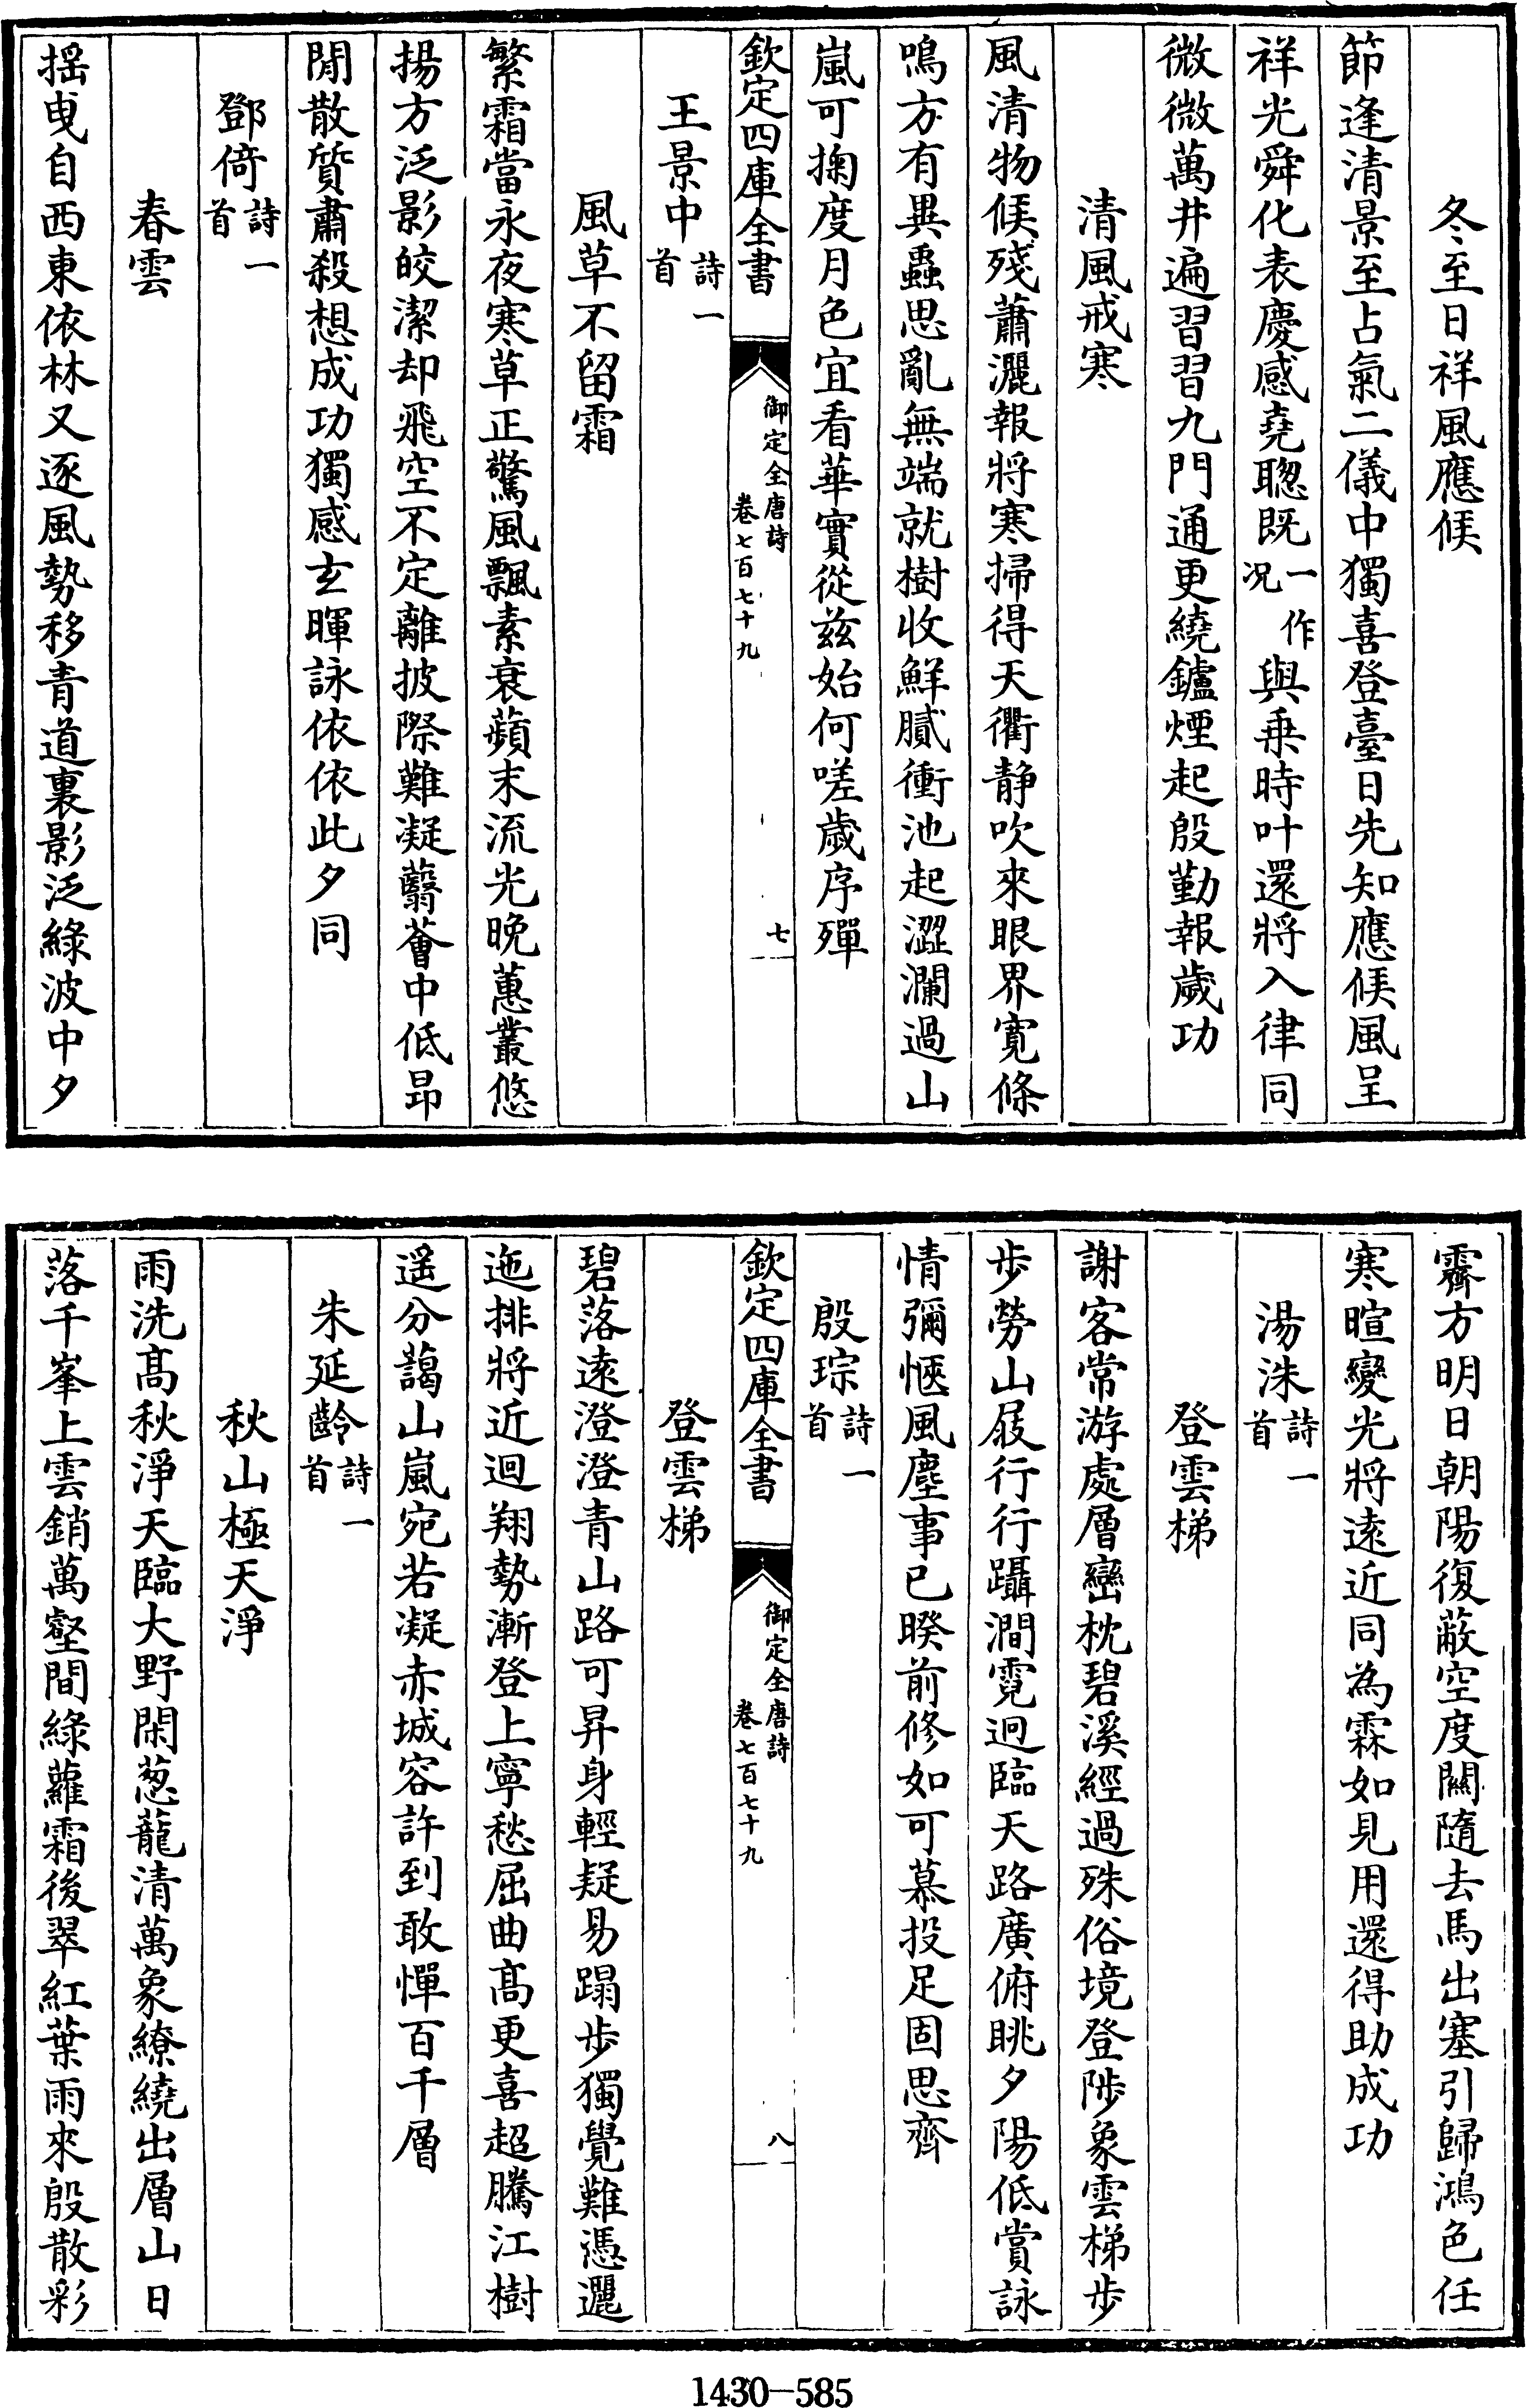 冬至日祥風應候
節逢清景至占氣二儀中獨喜登臺日先知應候風呈
祥光舜化表慶感堯聰既一作况與乗時叶還將入律同
微微萬井遍習習九門通更繞鑪煙起殷勤報歲功
清風戒寒
風清物候殘蕭灑報將寒掃得天衢静吹來眼界寛條
鳴方有異蟲思亂無端就樹收鮮膩衝池起澀瀾過山
嵐可掬度月色宜看華實從兹始何嗟歲序殫
欽定四庫全書
御定全唐詩
卷七百七十九
七
王景中詩一首
風草不留霜
繁霜當永夜寒草正驚風飄素衰蘋末流光晚蕙叢悠
揚方泛影皎潔却飛空不定離披際難凝蘙薈中低昂
閒散質肅殺想成功獨感玄暉詠依依此夕同
鄧倚詩一首
春雲
揺曵自西東依林又逐風勢移青道裏影泛綠波中夕
霽方明日朝陽復蔽空度關隨去馬出塞引歸鴻色任
寒暄變光將逺近同為霖如見用還得助成功
湯洙詩一首
登雲梯
謝客常游處層巒枕碧溪經過殊俗境登陟象雲梯步
步勞山屐行行躡澗霓迥臨天路廣俯眺夕陽低賞詠
情彌愜風塵事已暌前修如可慕投足固思齊
殷琮詩一首
欽定四庫全書
御定全唐詩
卷七百七十九
八
登雲梯
碧落逺澄澄青山路可昇身輕疑易蹋步獨覺難憑邐
迤排將近迴翔勢漸登上寧愁屈曲髙更喜超騰江樹
遥分藹山嵐宛若凝赤城容許到敢憚百千層
朱延齡詩一首
秋山極天淨
雨洗髙秋淨天臨大野閑葱蘢清萬象繚繞出層山日
落千峯上雲銷萬壑間綠蘿霜後翠紅葉雨來殷散彩
1430—585